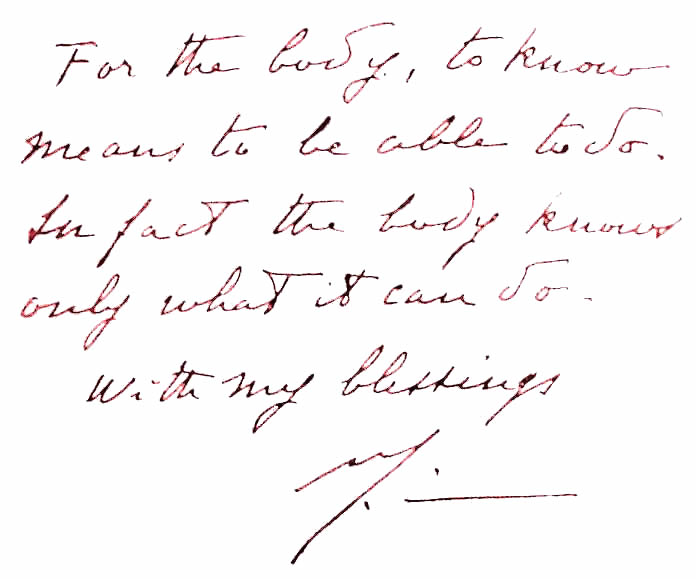 For the body, to know
means to be able to do.
In fact the body knows
only what it can do.
With my blessings